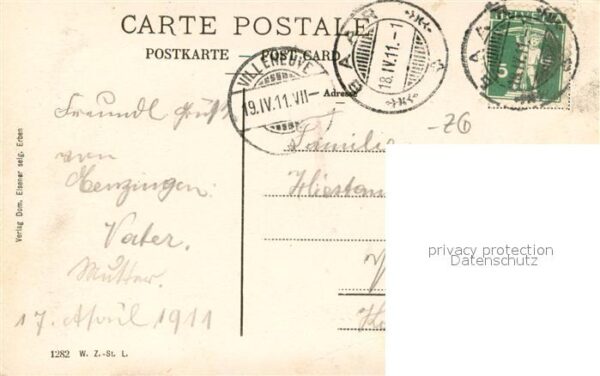 CARTE POSTALE
POSTKARTE — POST CARD
BAAR
18.IV.11.-1
VILLENEUVE
19.IV.11.VII-
HELVETIA
5
Adresse
-Z6
Freundl
von
Menzingen.
Vater.
Mutter.
17. April 1911
Familie
privacy protection
Datenschutz
Verlag Dom. Elsener selg. Erben
1282 W. Z.-St. L.